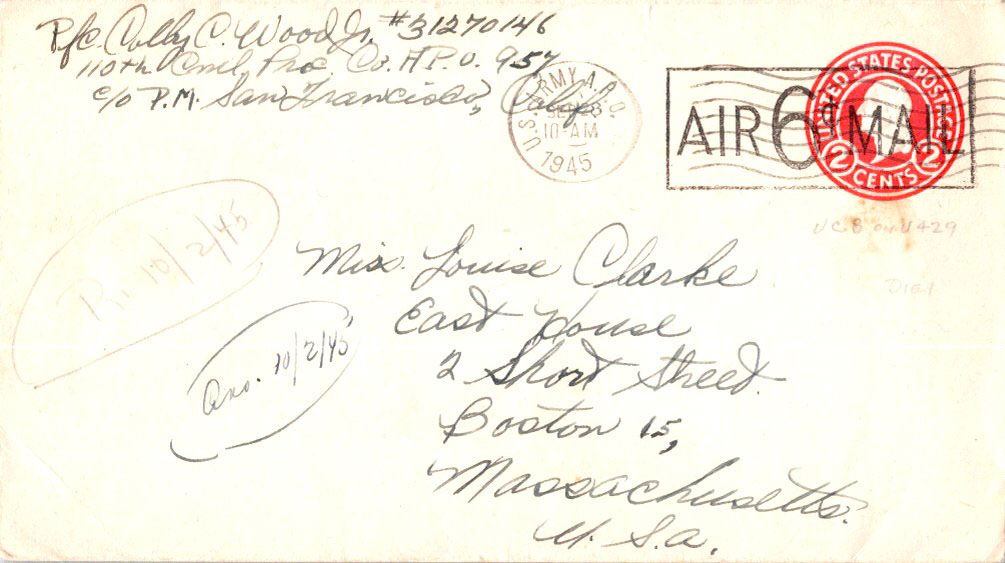 Pfc. Colby C. Wood Jr. #31270146
110th Cml. Proc. Co. A.P.O. 957
c/o P.M. San Francisco, Calif
U.S. ARMY A.P.O.
10-AM
1945
AIR 6¢ MAIL
UNITED STATES POSTAGE
2 CENTS 2
UC 8 on U429
R. 10/2/45
Miss. Louise Clarke
East House
Ans. 10/2/45
2 Short Street.
Boston 15,
Massachusetts.
U. S. A.